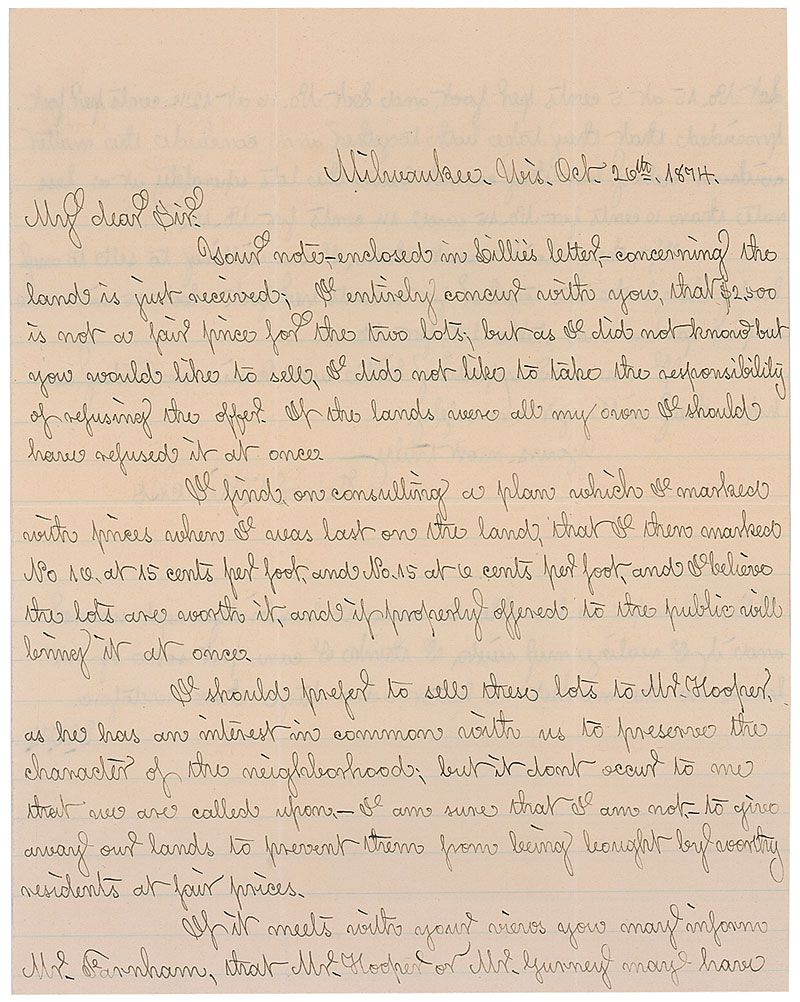 Milwaukee. Wis. Oct. 26th. 1874.
My dear Sir.
Your note,-enclosed in Lillie's letter,-concerning the
land is just received; I entirely concur with you, that $2,500
is not a fair price for the two lots; but as I did not know but
you would like to sell, I did not like to take the responsibility
of refusing the offer. If the lands were all my own I should
have refused it at once.
I find, on consulting a plan which I marked
with prices when I was last on the land, that I then marked
No 16. at 15 cents per foot, and No. 15 at 6 cents per foot, and I believe
the lots are worth it, and if properly offered to the public will
bring it at once.
I should prefer to sell these lots to Mr. Hooper,
as he has an interest in common with us to preserve the
character of the neighborhood; but it dont occur to me
that we are called upon - I am sure that I am not - to give
away our lands to prevent them from being bought by worthy
residents at fair prices.
If it meets with your views you may inform
Mr. Farnham, that Mr. Hooper or Mr. Gurney may have